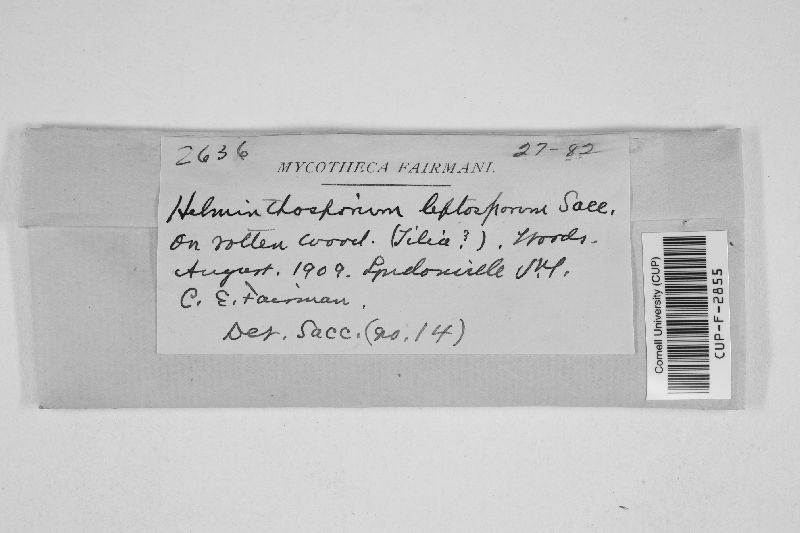 2636 27-82
MYCOTHECA FAIRMANI.
Helminthosporium leptosporum Sacc.
on rotten wood. (Tilia?). Woods.
August. 1909. Lyndonville N.Y.
C. E. Fairman.
Det. Sacc. (no. 14)
Cornell University (CUP)
CUP-F-2855